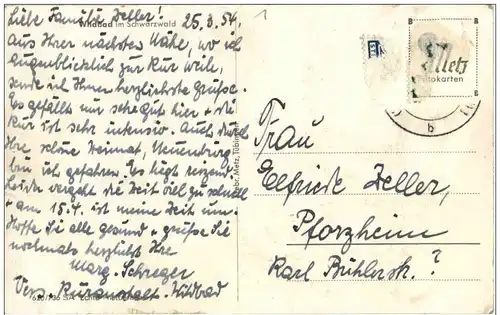 Liebe Familie Zeller!
25.3.54.
Wildbad im Schwarzwald
Aus Ihrer nächsten Nähe, wo ich
augenblicklich zur Kur weile,
sende ich Ihnen herzlichste Grüße.
Es gefällt mir sehr gut hier + die
Kur ist sehr intensiv. Auch durch
Ihre schöne Heimat, Neuenbürg
bin ich gefahren. Es liegt reizend.
Leider vergeht die Zeit viel zu schnell
+ am 15.4. ist meine Zeit um.
Hoffe Sie alle gesund + grüße Sie
nochmals herzlichst Ihre
Marg. Schreger
Vers. Kuranstalt. Wildbad
Gebr. Metz, Tübingen
Metz
Fotokarten
b
Frau
Elfriede Zeller,
Pforzheim
Karl Bühlerstr. ?